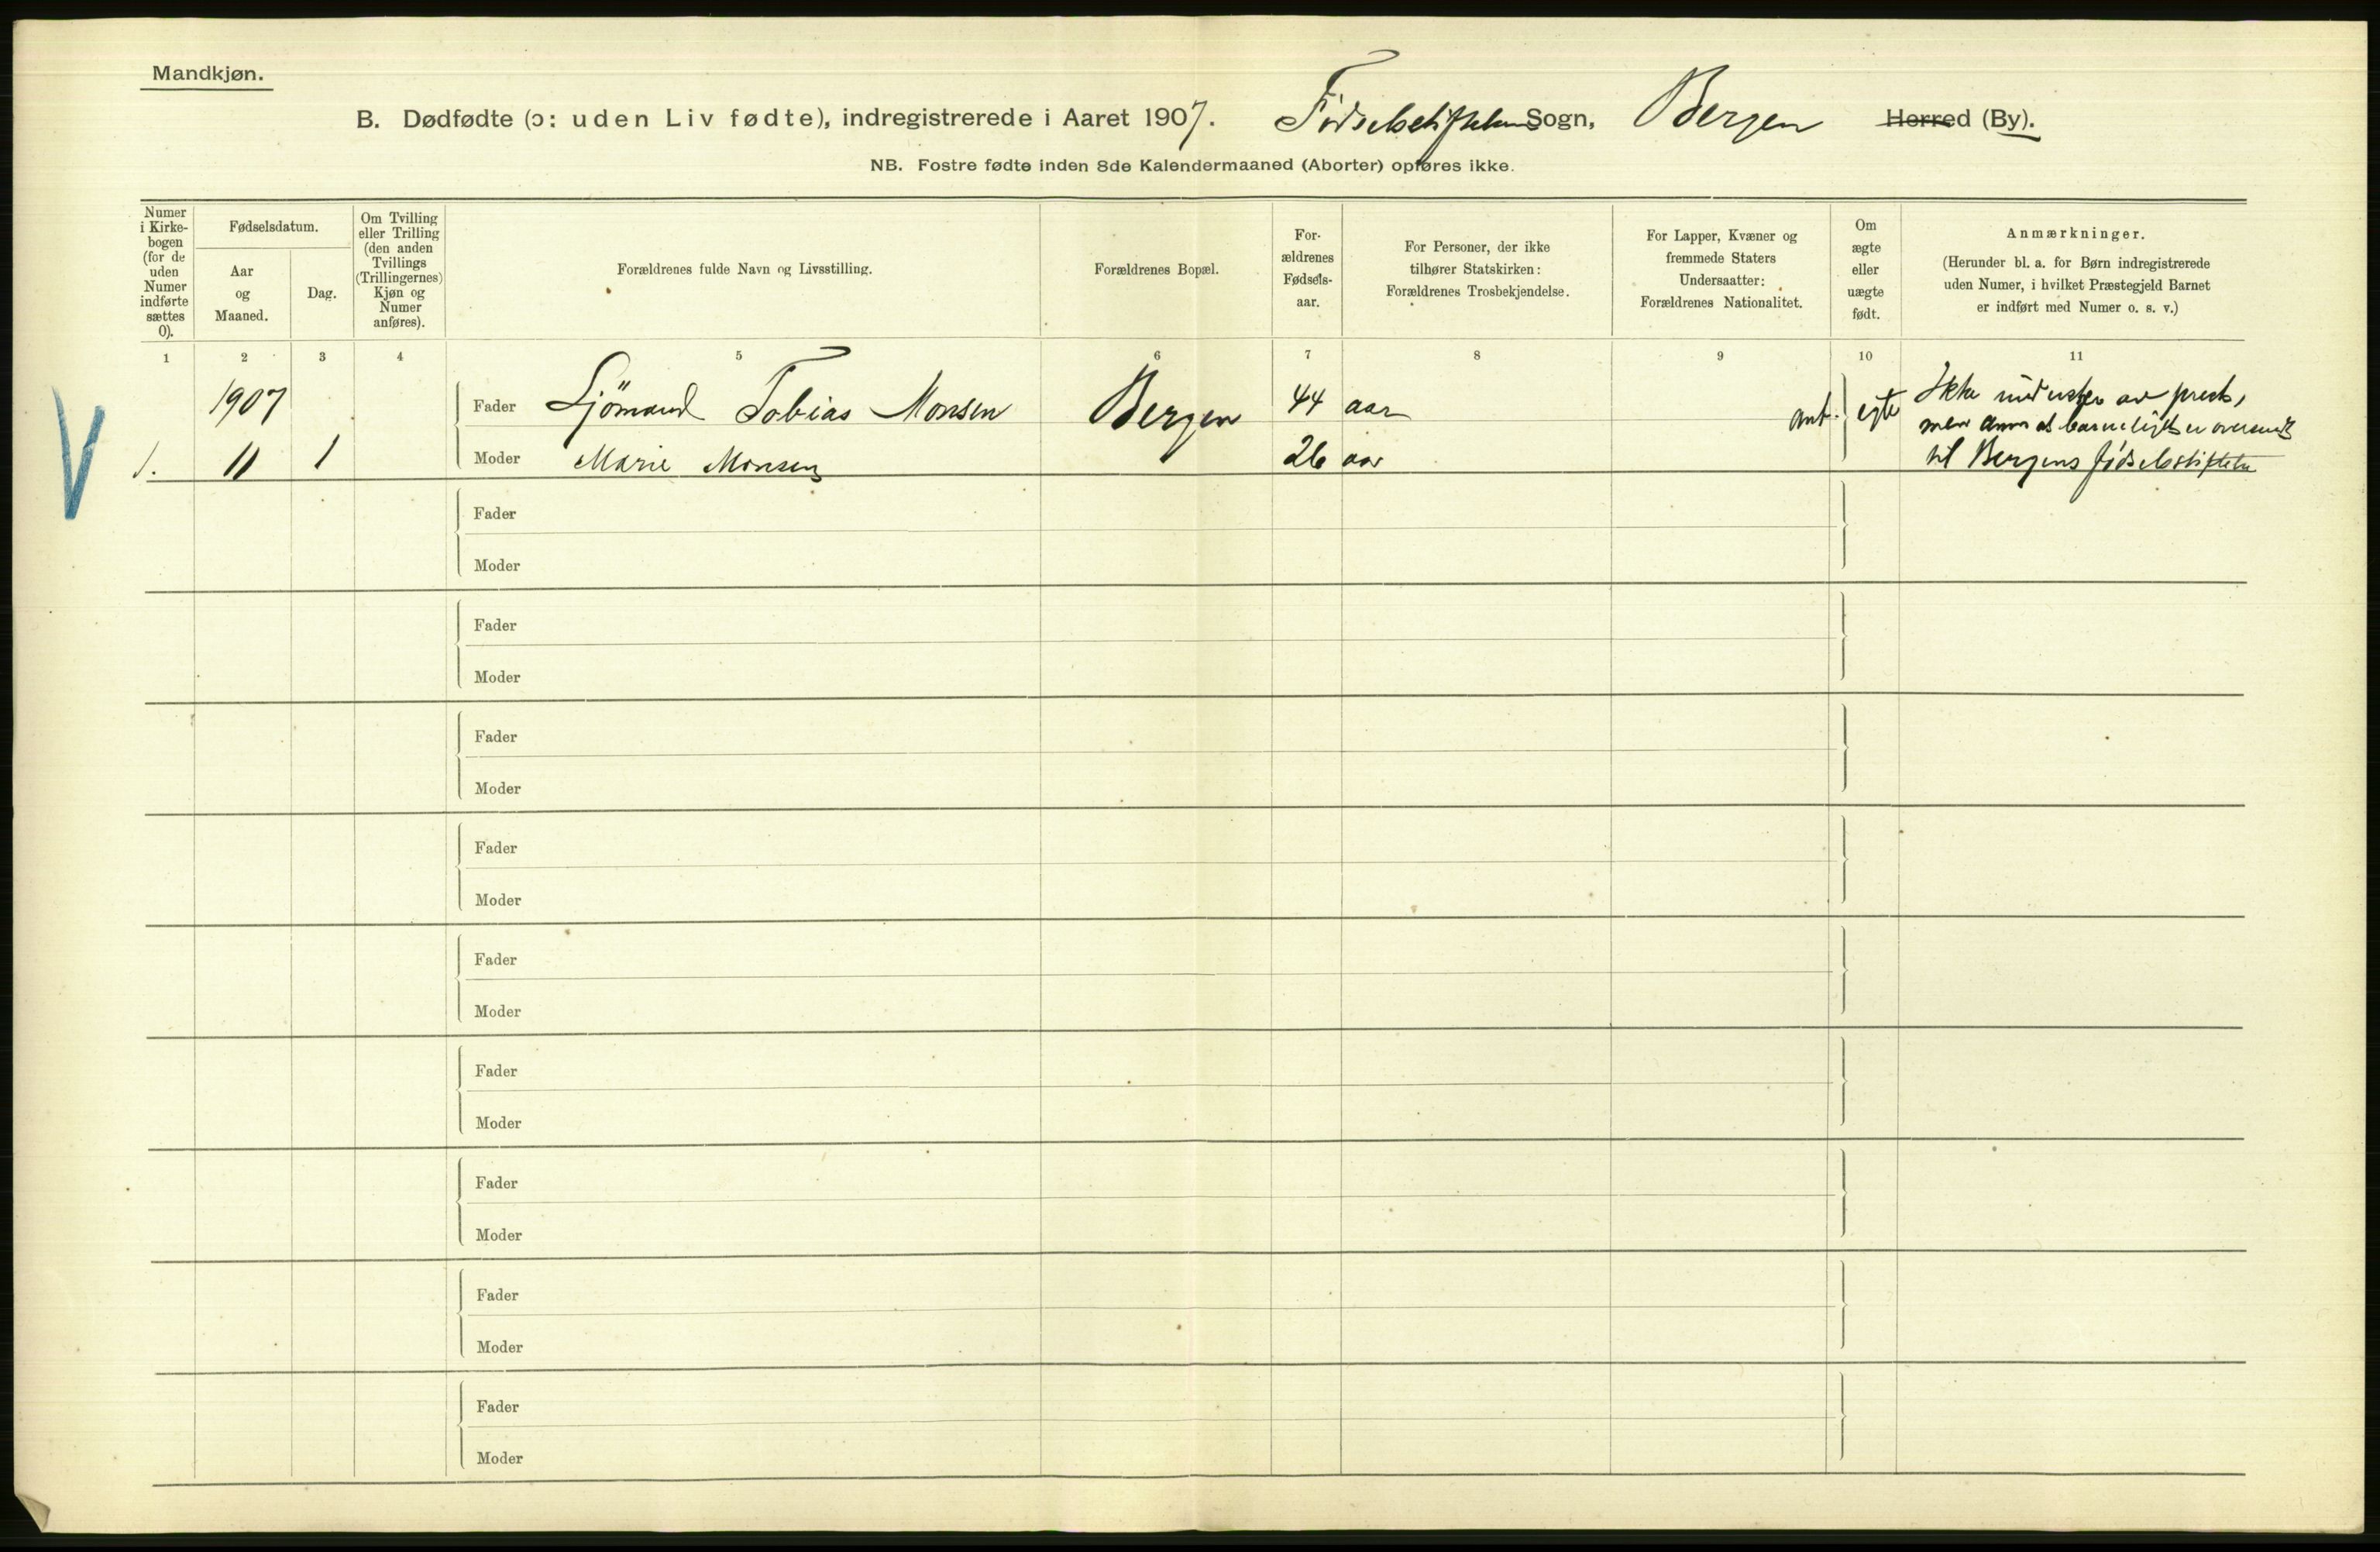 Mandkjøn.
B. Dødfødte (ɔ: uden Liv fødte), indregistrerede i Aaret 1907. Fødselsstiftelsens Sogn, Bergen Herred (By).
NB. Fostre fødte inden 8de Kalendermaaned (Aborter) opføres ikke.
Numer
i Kirke-
bogen
(for de
uden
Numer
indførte
sættes
0).
Fødselsdatum.
Aar
og
Maaned.
Dag.
Om Tvilling
eller Trilling
(den anden
Tvillings
(Trillingernes)
Kjøn og
Numer
anføres).
Forældrenes fulde Navn og Livsstilling.
Forældrenes Bopæl.
For-
ældrenes
Fødsels-
aar.
For Personer, der ikke
tilhører Statskirken:
Forældrenes Trosbekjendelse.
For Lapper, Kvæner og
fremmede Staters
Undersaatter:
Forældrenes Nationalitet.
Om
ægte
eller
uægte
født.
Anmærkninger.
(Herunder bl. a. for Børn indregistrerede
uden Numer, i hvilket Præstegjeld Barnet
er indført med Numer o. s. v.)
1 2 3 4 5 6 7 8 9 10 11
1907 Fader Sjömand Tobias Monsen Bergen 44 aar ant. egte
1. 11 1 Moder Marie Monsen 26 aar
Ikke av prest,
men at barneliget er oversendt
til Bergens fødselsstiftelse
Fader
Moder
Fader
Moder
Fader
Moder
Fader
Moder
Fader
Moder
Fader
Moder
Fader
Moder
Fader
Moder
Fader
Moder